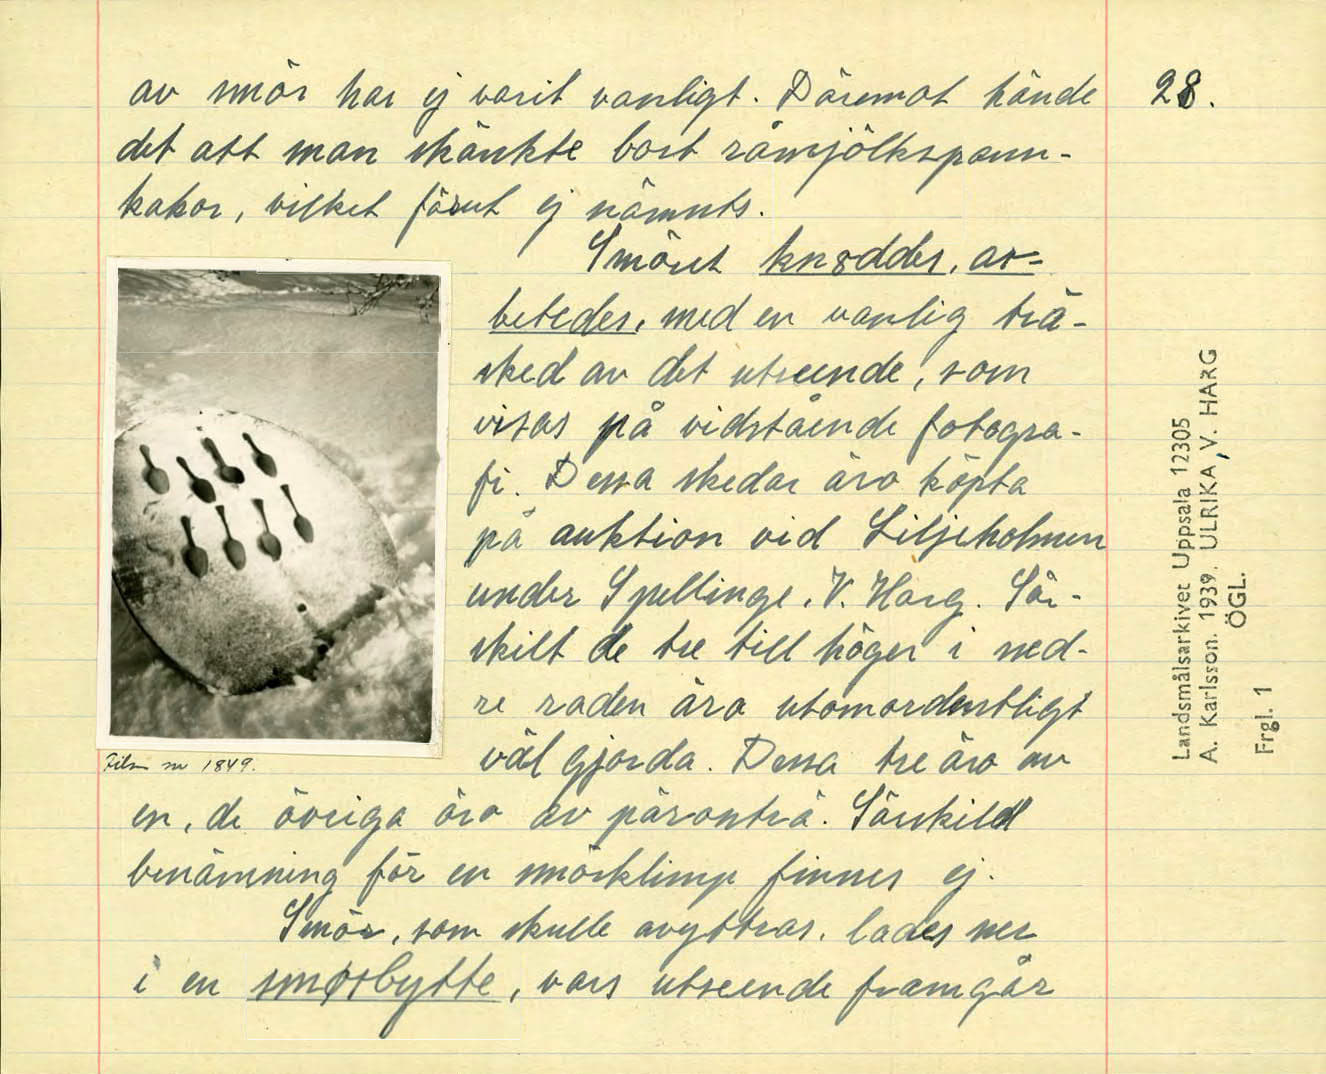 av smör har ej varit vanligt. Däremot hände
det att man skänkte bort råmjölkspann-
kakor, vilket förut ej nämnts.
Smöret knøddes, ar-
betedes, med en vanlig trä-
sked av det utseende, som
visas på vidstående fotogra-
fi. Dessa skedar äro köpta
på auktion vid Liljeholmen
under Spellinge, V. Harg. Sär-
skilt de tre till höger i ned-
re raden äro utomordentligt
väl gjorda. Dessa tre äro av
en, de övriga äro av päronträ. Särskild
benämning för en smörklimp finnes ej.
Smör, som skulle avyttras, lades ner
i en smørbytte, vars utseende framgår
Film nr 1849.
28.
Landsmålsarkivet Uppsala 12305
A. Karlsson. 1939. ULRIKA, V. HARG
ÖGL.
Frgl. 1